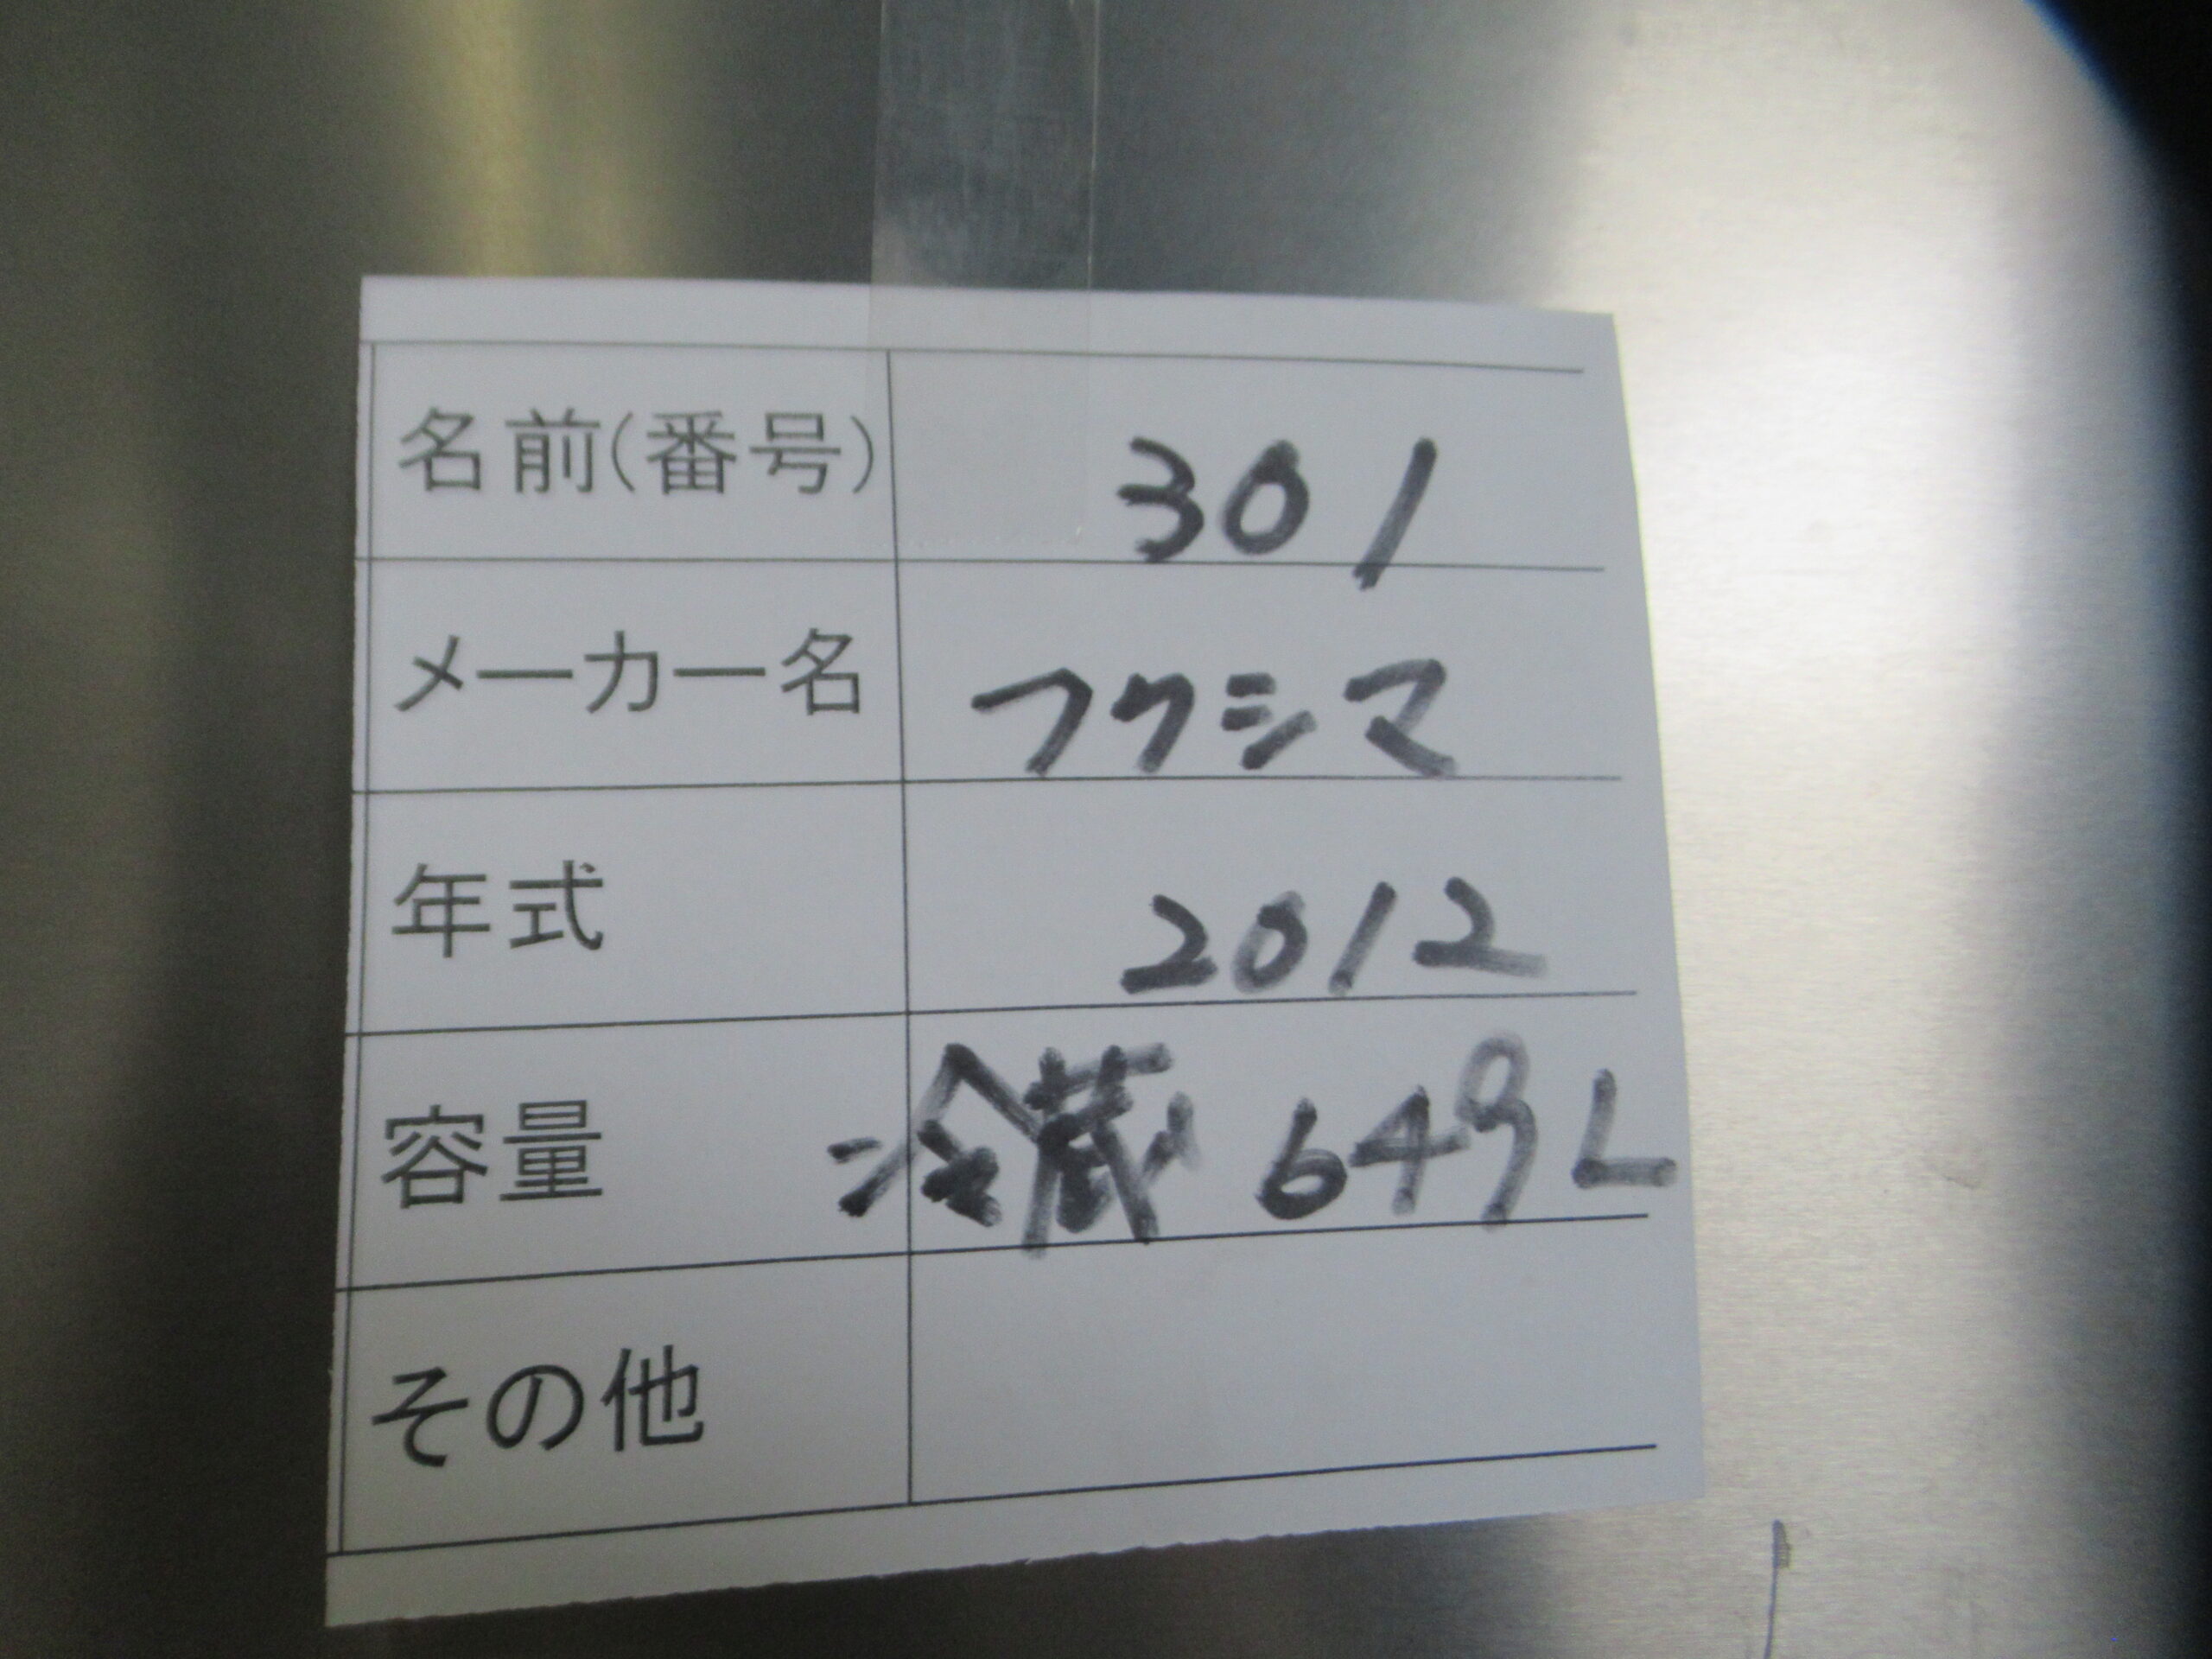 名前(番号) 301
メーカー名 フクシマ
年式 2012
容量 冷蔵 649L
その他